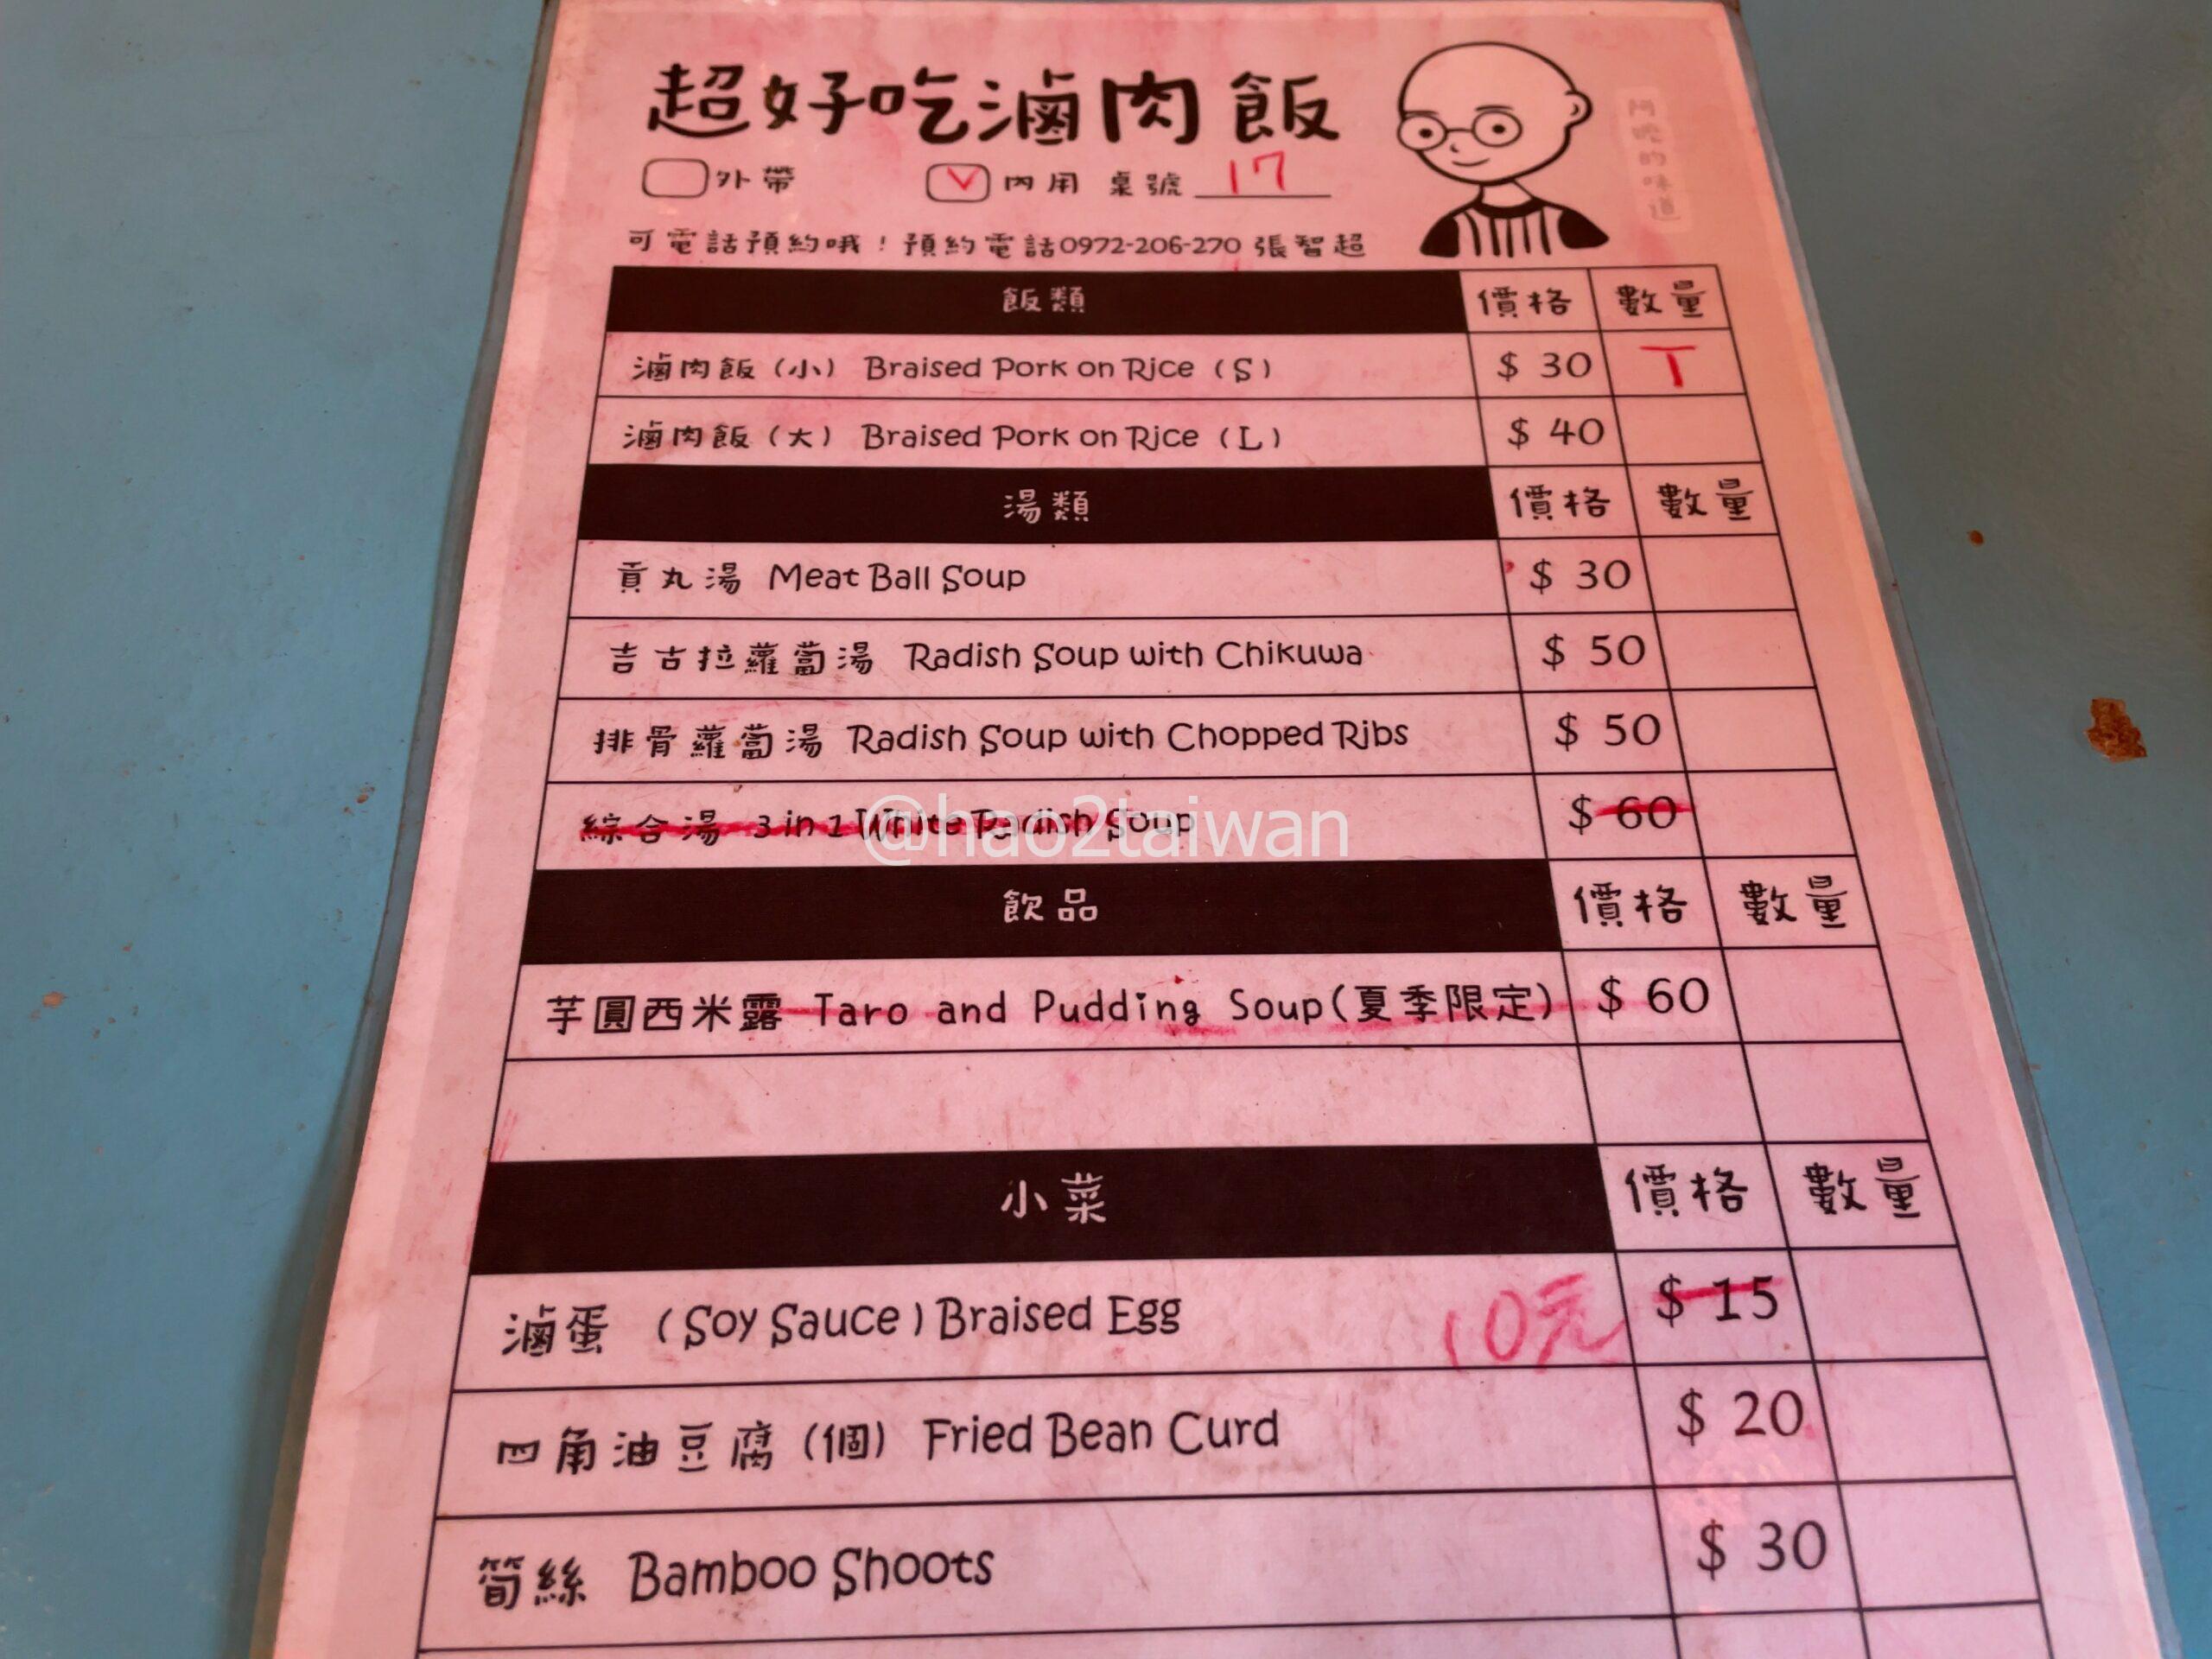 超好吃滷肉飯
外帶 V 內用 桌號 17
可電話預約哦！預約電話0972-206-270 張智超
飯類 價格 數量
滷肉飯（小） Braised Pork on Rice （S） $ 30 T
滷肉飯（大） Braised Pork on Rice （L） $ 40
湯類 價格 數量
貢丸湯 Meat Ball Soup $ 30
吉古拉蘿蔔湯 Radish Soup with Chikuwa $ 50
排骨蘿蔔湯 Radish Soup with Chopped Ribs $ 50
綜合湯 3 in 1 White Radish Soup $ 60
@hao2taiwan
飲品 價格 數量
芋圓西米露 Taro and Pudding Soup(夏季限定) $ 60
小菜 價格 數量
滷蛋 （Soy Sauce）Braised Egg 10元 $ 15
四角油豆腐（個） Fried Bean Curd $ 20
筍絲 Bamboo Shoots $ 30